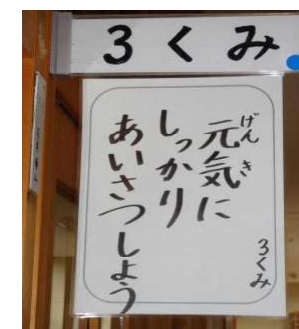 3くみ
元気に
げんき
しっかり
あいさつしよう
3くみ